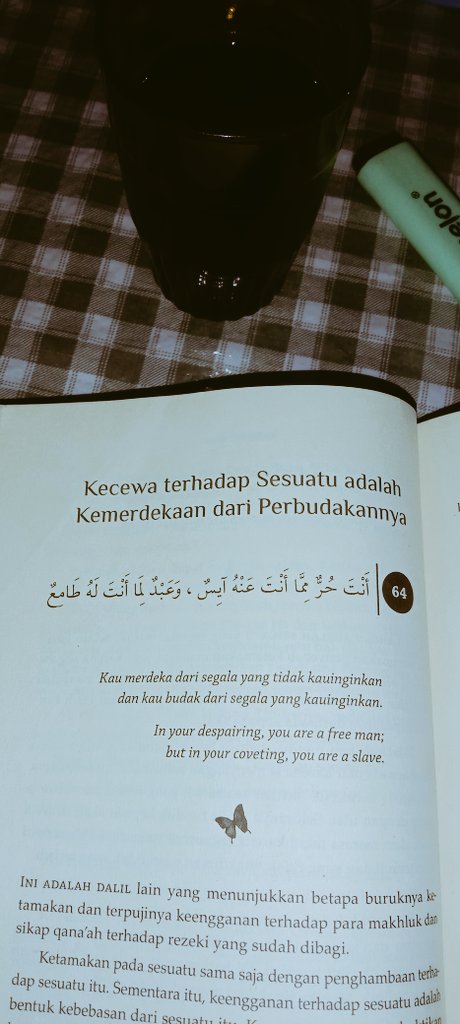 elon
Kecewa terhadap Sesuatu adalah
Kemerdekaan dari Perbudakannya
64
أَنْتَ حُرٌّ مِمَّا أَنْتَ عَنْهُ آيِسٌ ، وَعَبْدٌ لِمَا أَنْتَ لَهُ طَامِعٌ
Kau merdeka dari segala yang tidak kauinginkan
dan kau budak dari segala yang kauinginkan.
In your despairing, you are a free man;
but in your coveting, you are a slave.
INI ADALAH DALIL lain yang menunjukkan betapa buruknya ke-
tamakan dan terpujinya keengganan terhadap para makhluk dan
sikap qana'ah terhadap rezeki yang sudah dibagi.
Ketamakan pada sesuatu sama saja dengan penghambaan terha-
dap sesuatu itu. Sementara itu, keengganan terhadap sesuatu adalah
bentuk kebebasan dari sesuatu itu.